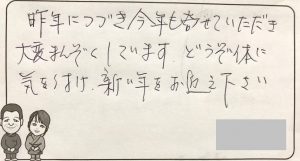 昨年につづき今年も寄せていただき
大変まんぞくしています どうぞ体に
気をつけ、新い年をお迎え下さい